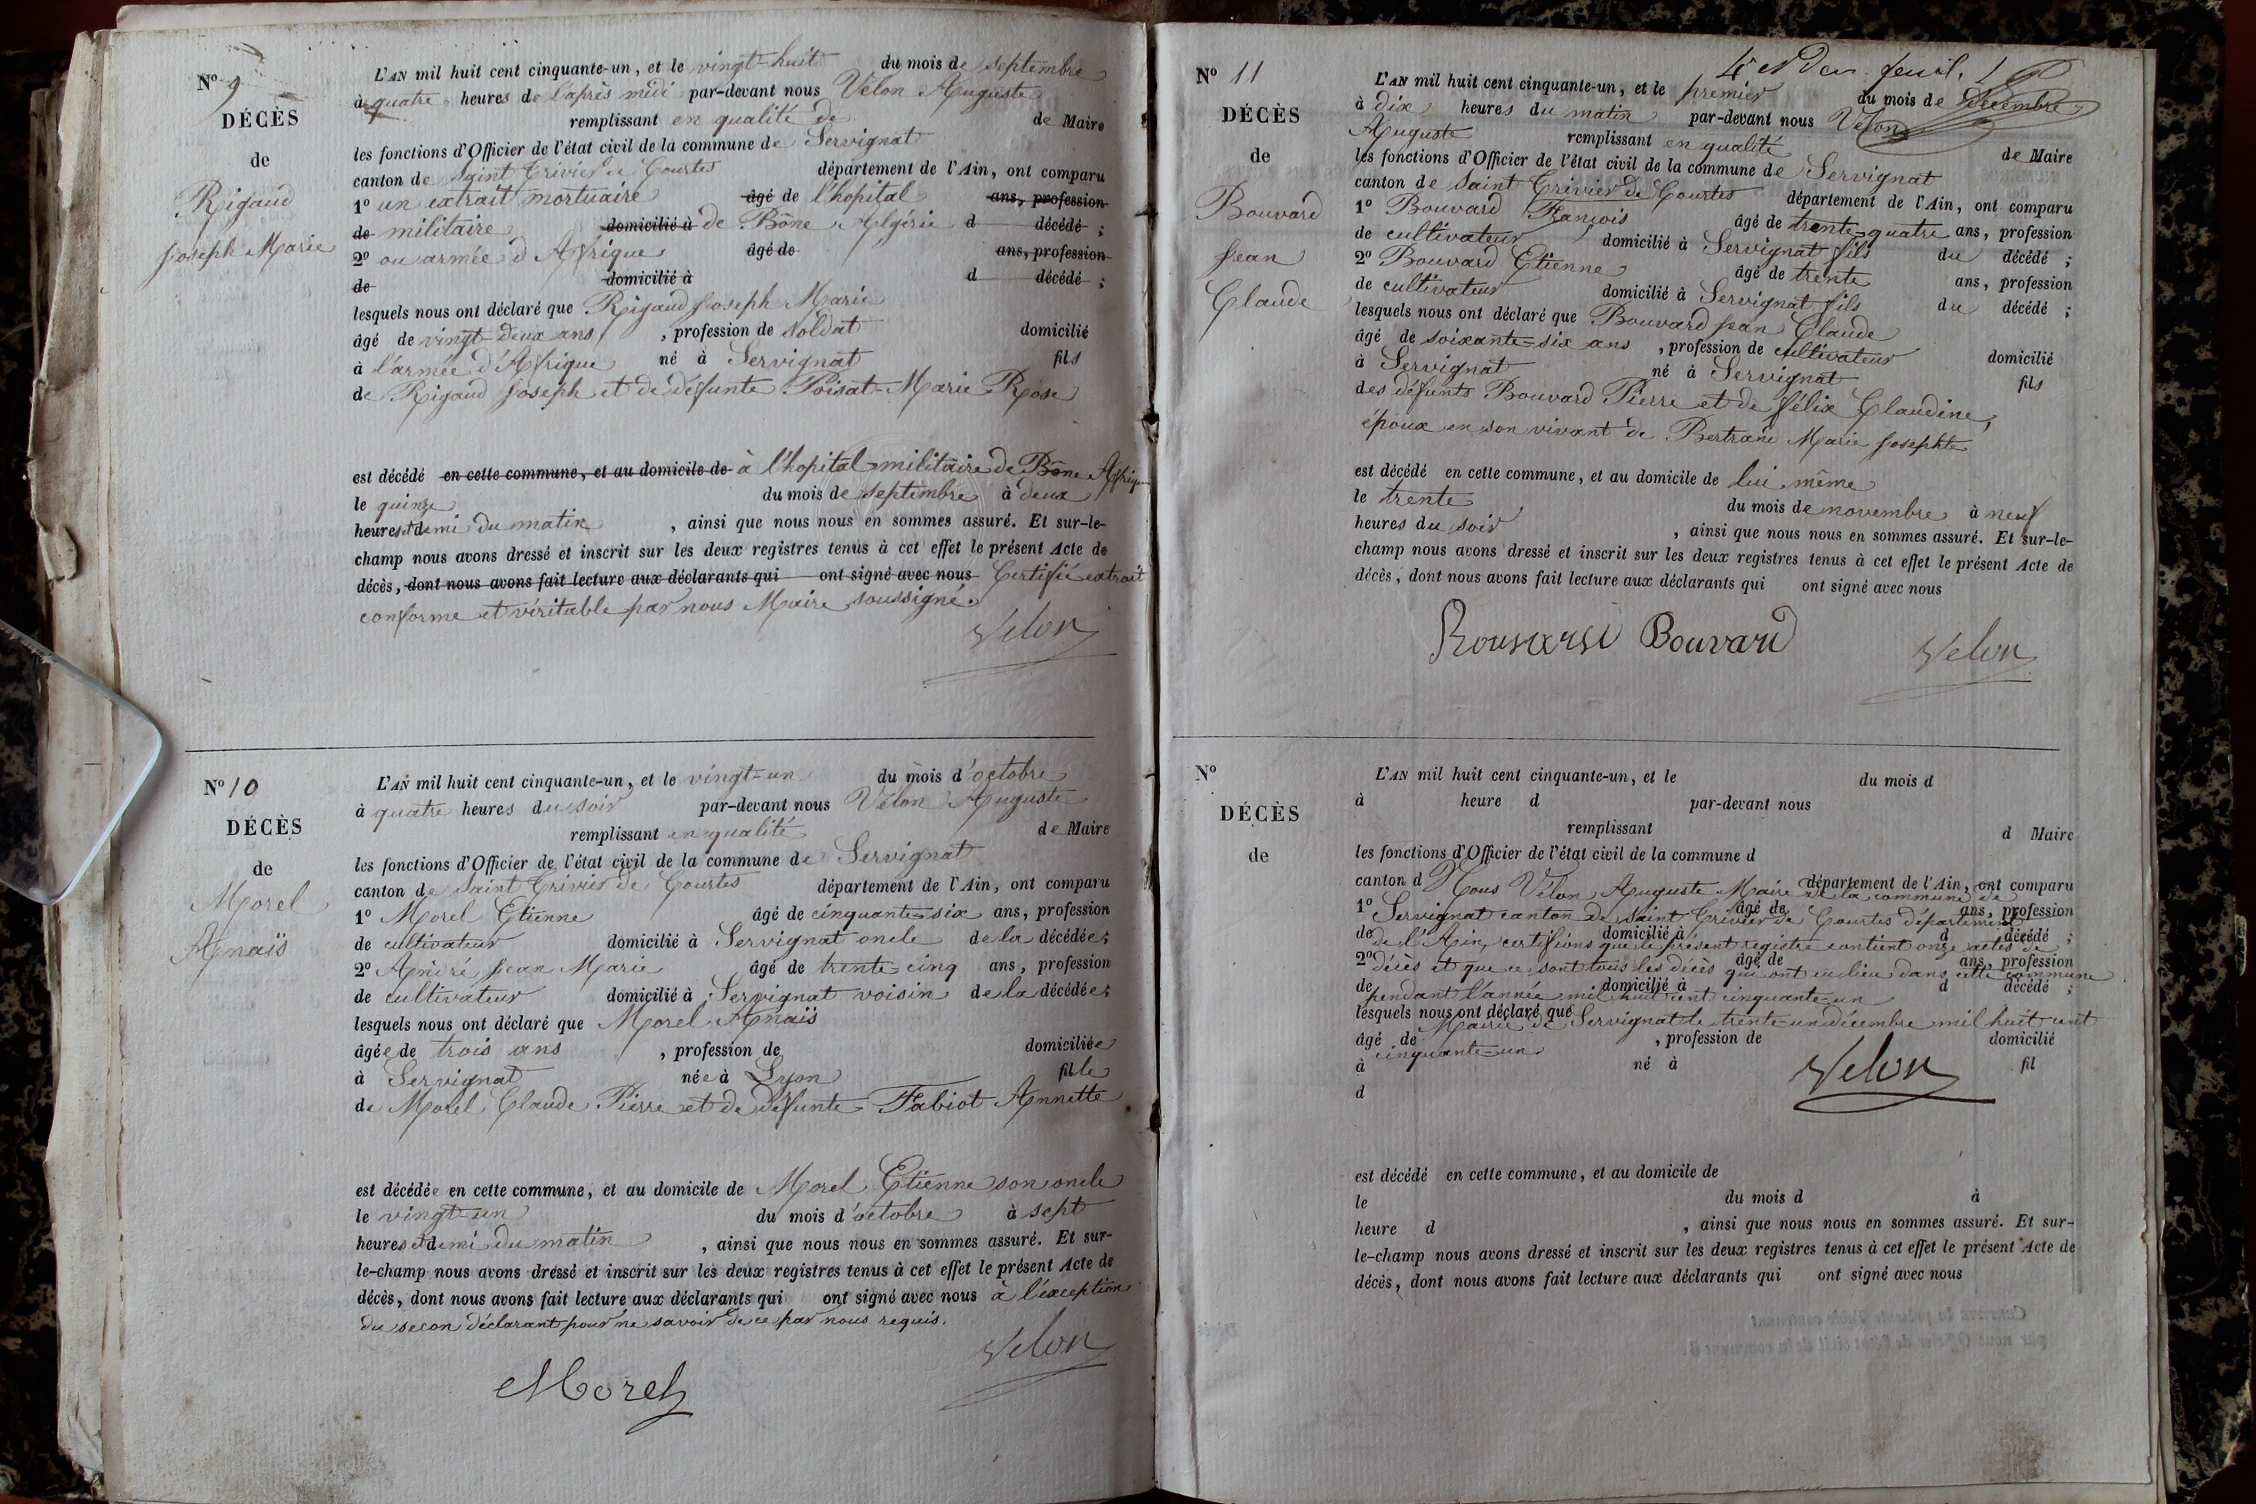 N° 9
DÉCÈS
de
Rigaud
Joseph Marie
L'AN mil huit cent cinquante-un, et le vingt-huit du mois de septembre
à quatre heures de l'après midi par-devant nous Velon Auguste
remplissant en qualité de de Maire
les fonctions d'Officier de l'état civil de la commune de Servignat
canton de Saint Trivier de Courtes département de l'Ain, ont comparu
1° un extrait mortuaire âgé de l'hopital ans, profession
de militaire domicilié à de Bône Algérie d décédé ;
2° ou armée d'Afrique âgé de ans, profession
de domicilié à d décédé ;
lesquels nous ont déclaré que Rigaud Joseph Marie
âgé de vingt-deux ans, profession de soldat domicilié
à l'armée d'Afrique né à Servignat fils
de Rigaud Joseph et de défunte Poisat Marie Rose
est décédé en cette commune, et au domicile de à l'hopital militaire de Bône Afrique
le quinze du mois de septembre à deux
heures et demi du matin, ainsi que nous nous en sommes assuré. Et sur-le-
champ nous avons dressé et inscrit sur les deux registres tenus à cet effet le présent Acte de
décès, dont nous avons fait lecture aux déclarants qui ont signé avec nous Certifié extrait
conforme et véritable par nous Maire soussigné.
Velon
N° 10
DÉCÈS
de
Morel
Anaïs
L'AN mil huit cent cinquante-un, et le vingt-un du mois d'octobre
à quatre heures du soir par-devant nous Velon Auguste
remplissant en qualité de Maire
les fonctions d'Officier de l'état civil de la commune de Servignat
canton de Saint Trivier de Courtes département de l'Ain, ont comparu
1° Morel Etienne âgé de cinquante-six ans, profession
de cultivateur domicilié à Servignat oncle de la décédée ;
2° André Jean Marie âgé de trente cinq ans, profession
de cultivateur domicilié à Servignat voisin de la décédée ;
lesquels nous ont déclaré que Morel Anaïs
âgée de trois ans, profession de domiciliée
à Servignat née à Lyon fille
de Morel Claude Pierre et de défunte Fabiot Annette
est décédée en cette commune, et au domicile de Morel Etienne son oncle
le vingt-un du mois d'octobre à sept
heures et demi du matin, ainsi que nous nous en sommes assuré. Et sur-
le-champ nous avons dressé et inscrit sur les deux registres tenus à cet effet le présent Acte de
décès, dont nous avons fait lecture aux déclarants qui ont signé avec nous à l'exception
du secon déclarant pour ne savoir de ce par nous requis.
Velon
Morel
4e et der feuil.
N° 11
DÉCÈS
de
Bouvard
Jean
Claude
L'AN mil huit cent cinquante-un, et le premier du mois de décembre
à dix heures du matin par-devant nous Velon
Auguste remplissant en qualité de Maire
les fonctions d'Officier de l'état civil de la commune de Servignat
canton de Saint Trivier de Courtes département de l'Ain, ont comparu
1° Bouvard François âgé de trente-quatre ans, profession
de cultivateur domicilié à Servignat fils du décédé ;
2° Bouvard Etienne âgé de trente ans, profession
de cultivateur domicilié à Servignat fils du décédé ;
lesquels nous ont déclaré que Bouvard Jean Claude
âgé de soixante-six ans, profession de cultivateur domicilié
à Servignat né à Servignat fils
des défunts Bouvard Pierre et de Félix Claudine,
époux en son vivant de Bertrand Marie Josephte
est décédé en cette commune, et au domicile de lui même
le trente du mois de novembre à neuf
heures du soir, ainsi que nous nous en sommes assuré. Et sur-le-
champ nous avons dressé et inscrit sur les deux registres tenus à cet effet le présent Acte de
décès, dont nous avons fait lecture aux déclarants qui ont signé avec nous
Bouvard Velon
N°
DÉCÈS
de
L'AN mil huit cent cinquante-un, et le du mois d
à heure d par-devant nous
remplissant d Maire
les fonctions d'Officier de l'état civil de la commune d
canton d département de l'Ain, ont comparu
Nous Velon Auguste Maire de la commune de
1° âgé de ans, profession
Servignat canton de Saint Trivier de Courtes département
de domicilié à d décédé ;
de l'Ain, certifions que le présent registre contient onze actes de
2° âgé de ans, profession
décès et que ce sont tous les décès qui ont eu lieu dans cette commune
de domicilié à d décédé ;
pendant l'année mil huit cent cinquante-un
lesquels nous ont déclaré que
Mairie de Servignat le trente-un décembre mil huit cent
âgé de , profession de domicilié
cinquante-un
à né à fil
Velon
d
est décédé en cette commune, et au domicile de
le du mois d à
heure d , ainsi que nous nous en sommes assuré. Et sur-
le-champ nous avons dressé et inscrit sur les deux registres tenus à cet effet le présent Acte de
décès, dont nous avons fait lecture aux déclarants qui ont signé avec nous